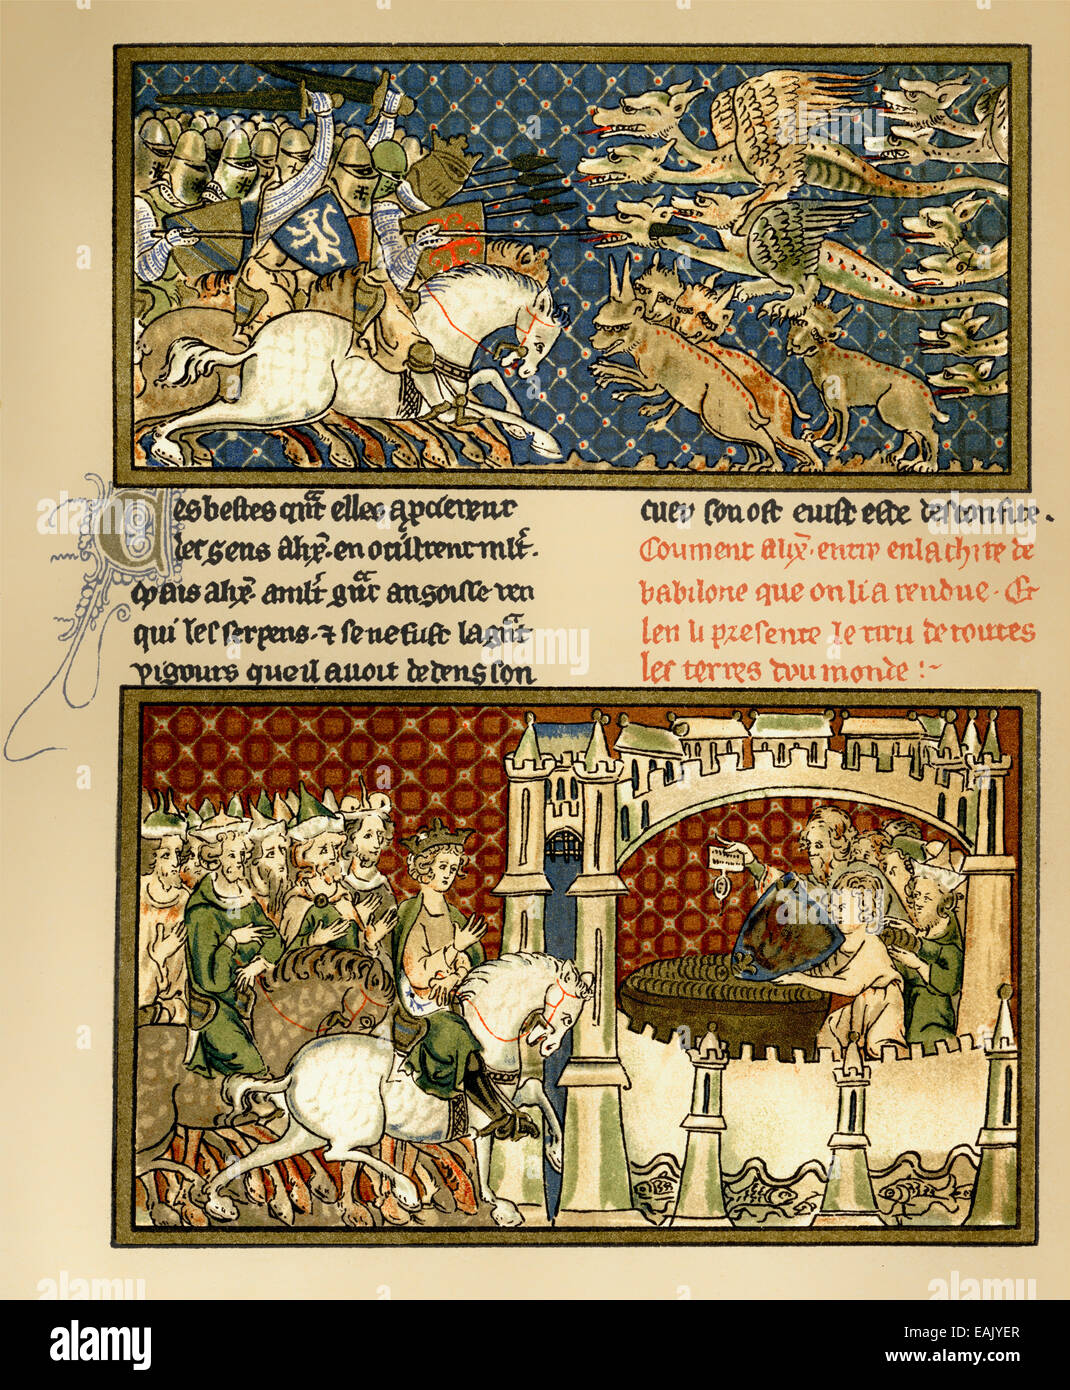 Les bestes qñt elles apcieirent
les gens alix̃. en ocistrent mlt̃.
Mais alix̃ a mlt̃ gñt angoisse ren
qui les serpens. ⁊ se ne fust la gñt
vigours que il avoit dedens son
cuer son ost eust este desconfite.
Coument alix̃. entre en la chite de
babilone que on li a rendue. Et
len li presente le treu de toutes
les terres dou monde :~
a alamy stock photo
alamy
Image ID: EAJYER
www.alamy.com